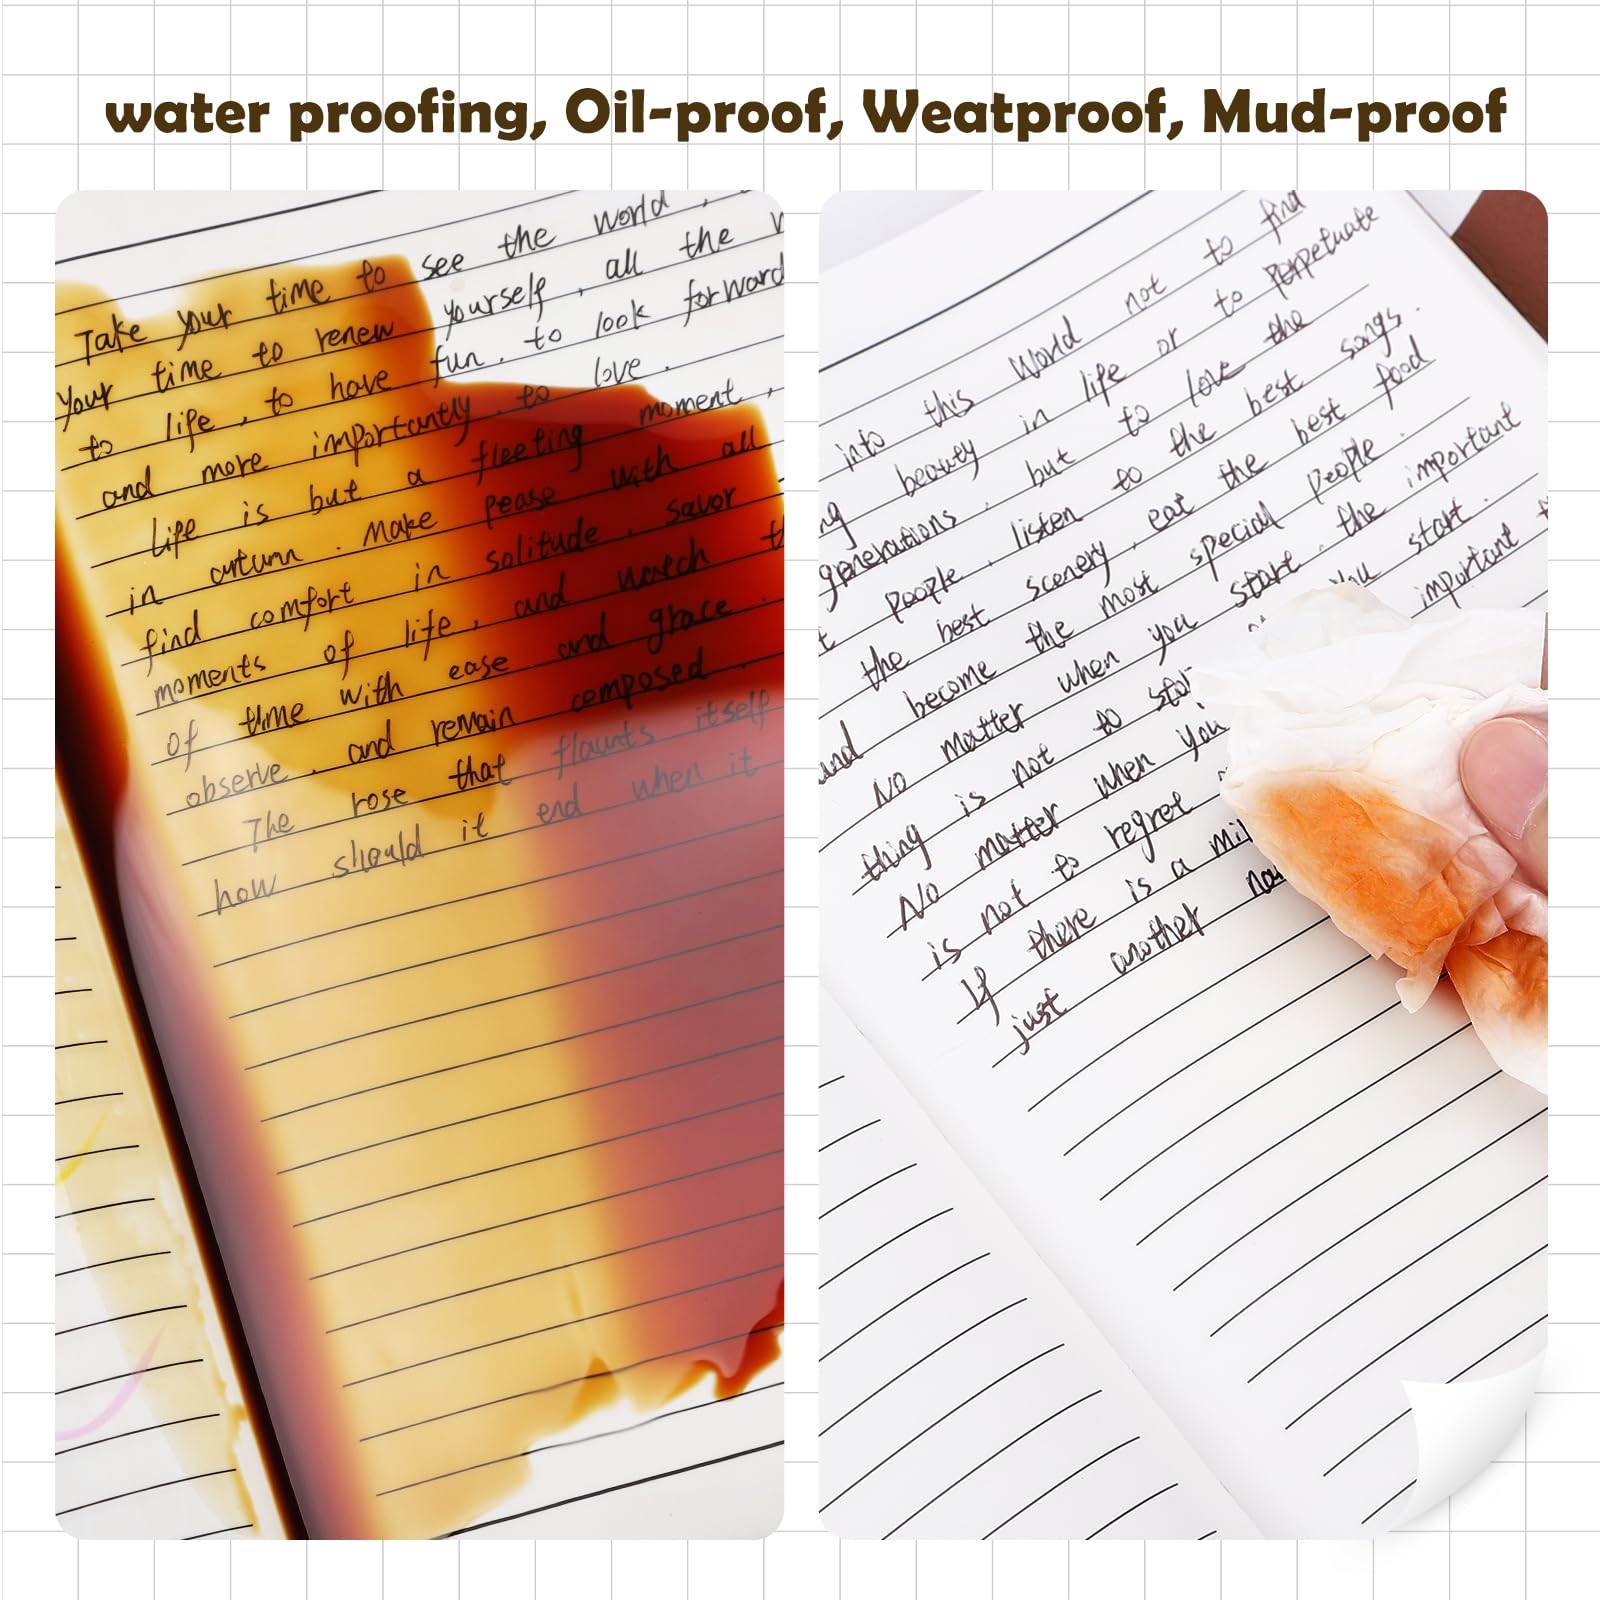 water proofing, Oil-proof, Weatproof, Mud-proof
Take your time to see the world,
your time to renew yourself, all the
to life, to have fun. to look forward
and more importantly, to love.
Life is but a fleeting moment,
in arturn. Make pease with all
find comfort in solitude, savor
moments of life, and watch
of time with ease and grace.
observe, and remain composed.
The rose that flaunts itself
how should it end when it
into this world not to find
beauty in life or to perpetuate
generations, but to love the
people, listen to the best songs.
the best scenery, eat the best food
and become the most special people.
No matter when you start, the important
thing is not to start.
No matter when you important
is not to regret
If there is a
just another